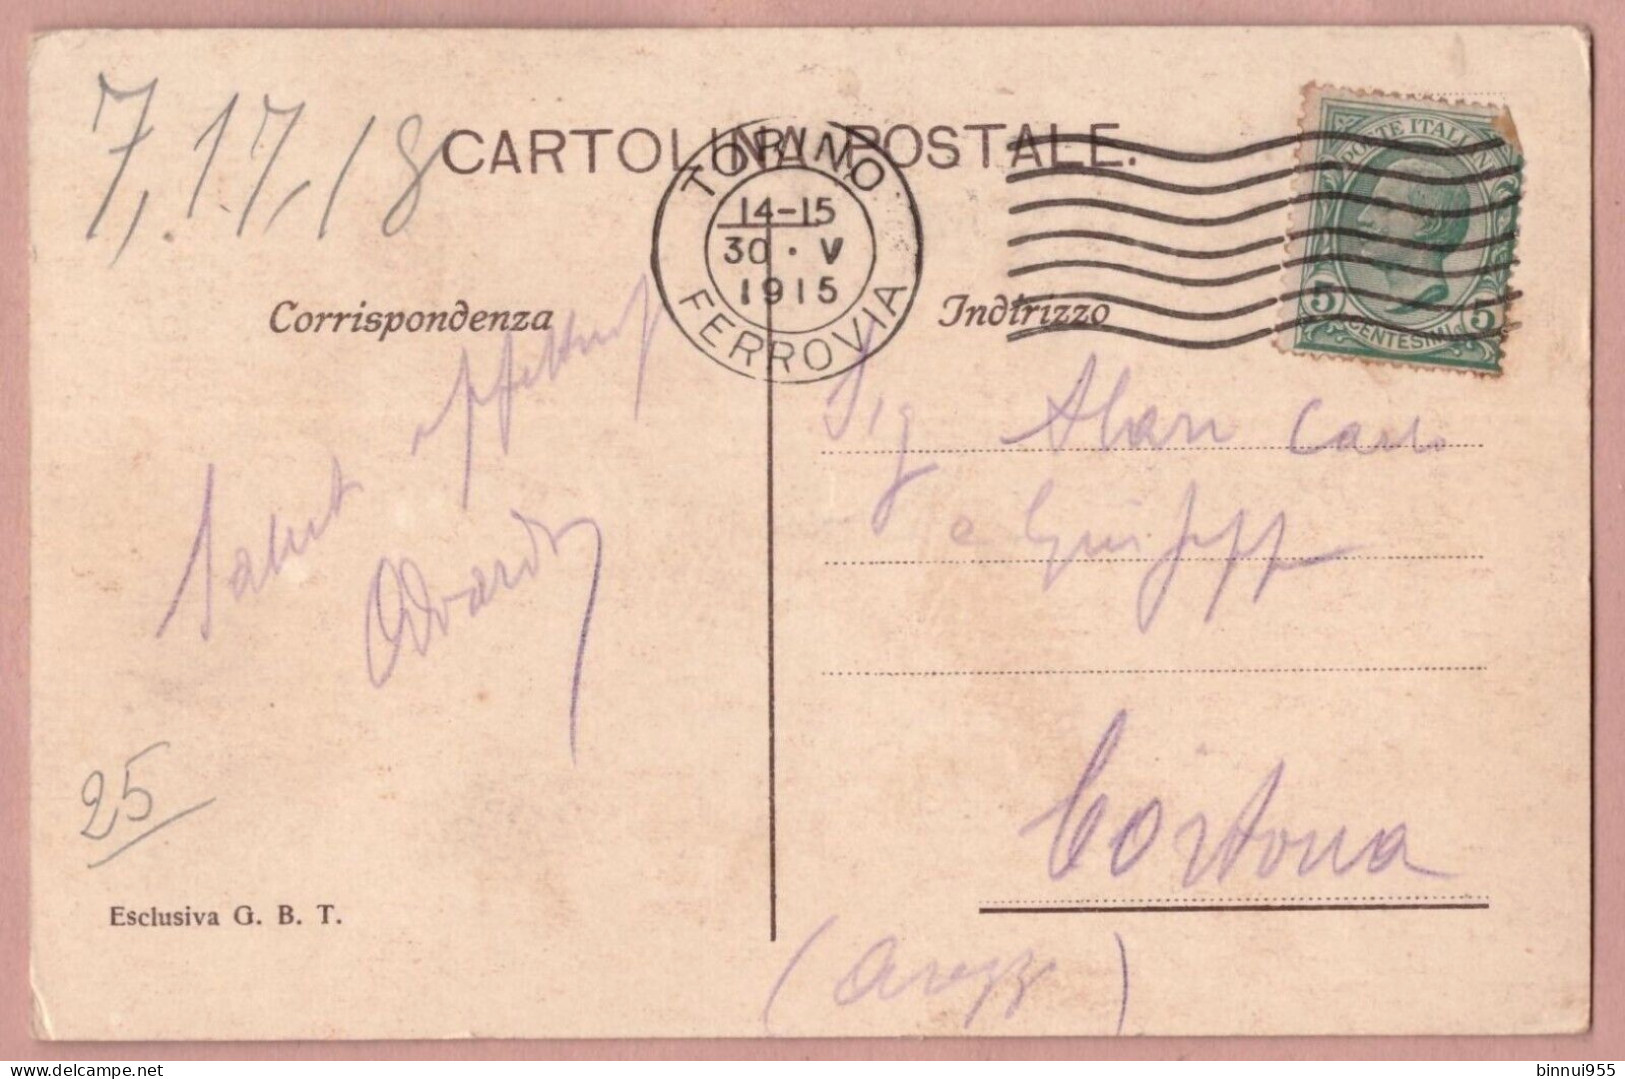 7,17,18
CARTOLINA POSTALE.
TORINO
14-15
30 · V
1915
FERROVIA
POSTE ITALIANE
5 CENTESIMI 5
Corrispondenza
Saluti affettuosi
Edvardo
Indirizzo
Sig Carlo
e Giuseppe
Cortona
(Arezzo)
25
Esclusiva G. B. T.
binnui955